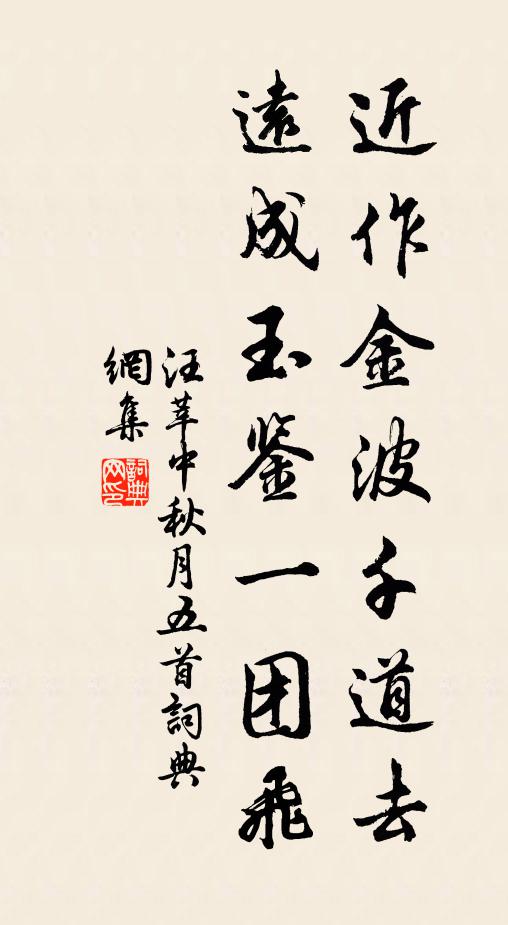 近作金波千道去
遠成玉鉴一团飛
汪莘中秋月五首詞典
網集
詞典
网印